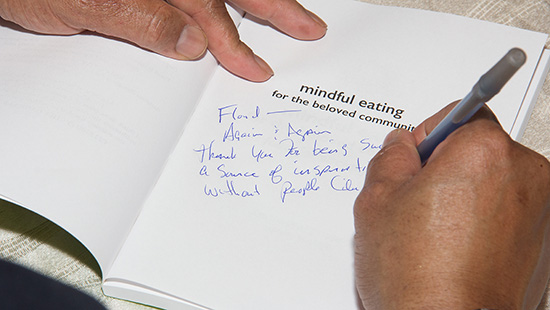 mindful eating
for the beloved communit
Floyd —
Again & Again
thank you for being su
a source of inspirati
without people like